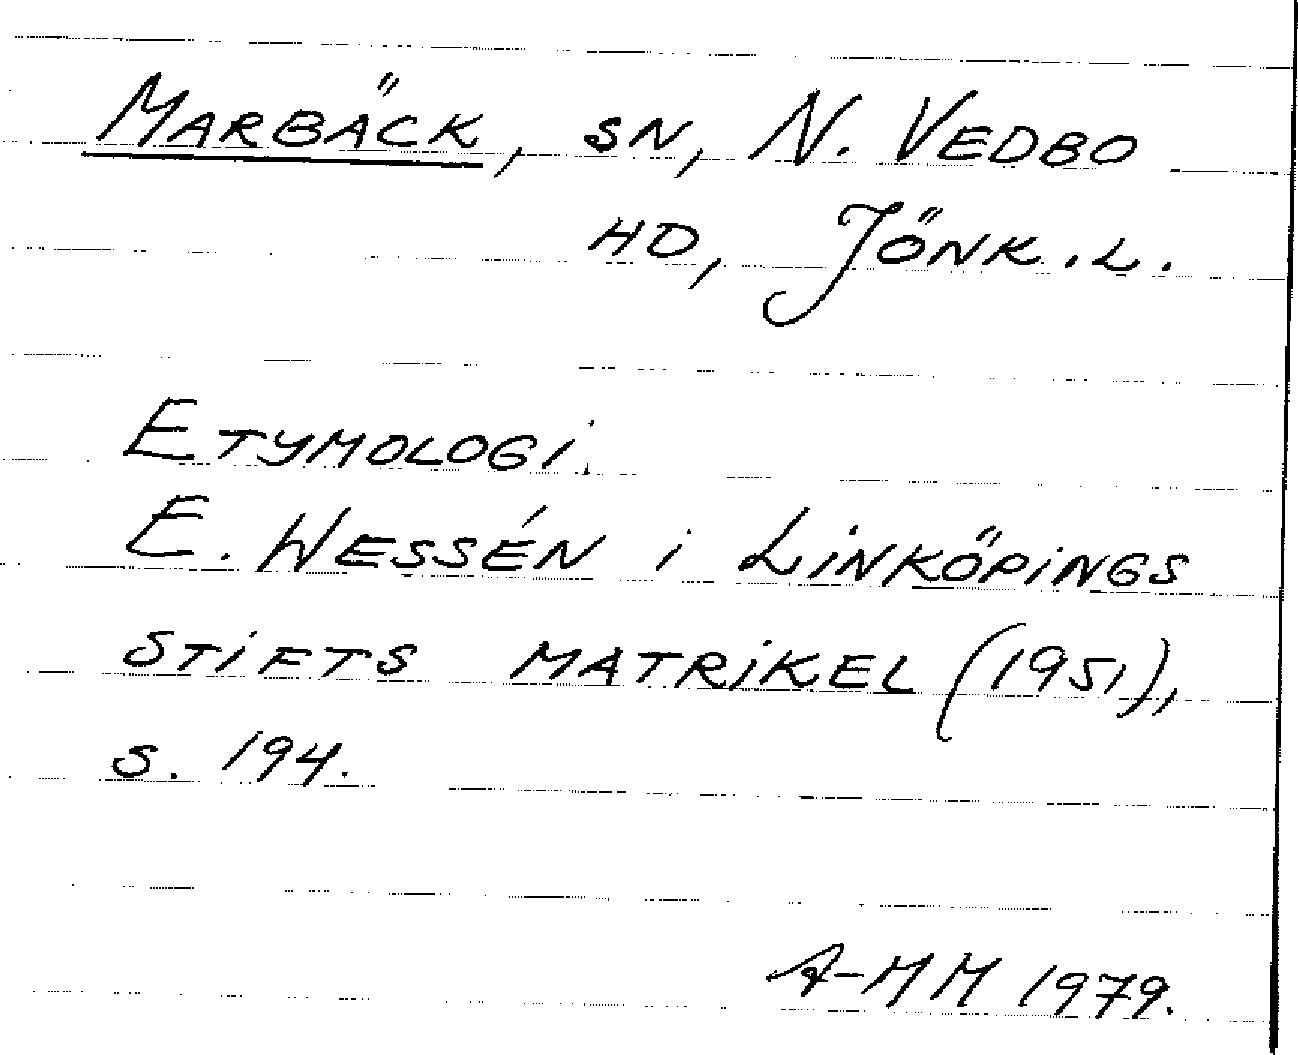 MARBÄCK, SN, N. VEDBO
HD, JÖNK.L.
ETYMOLOGI.
E. WESSÉN i LINKÖPINGS
STIFTS MATRIKEL (1951),
S. 194.
A-MM 1979.